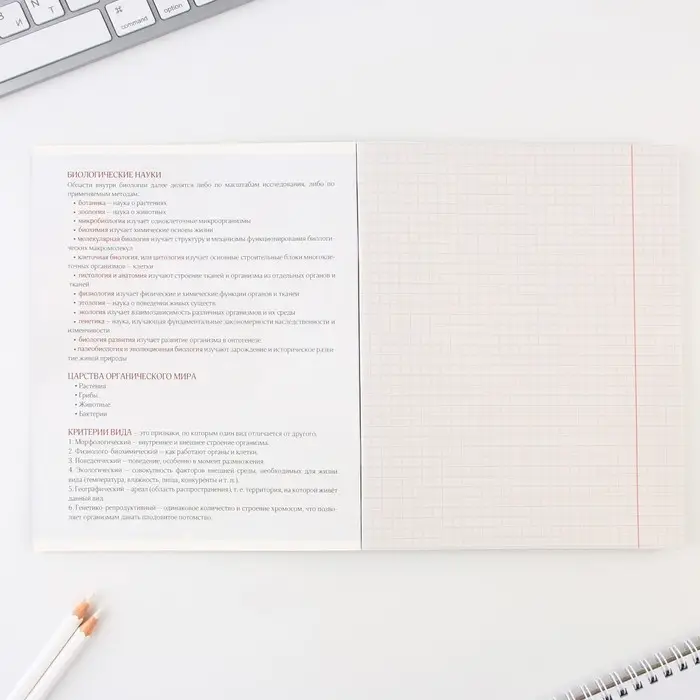 З
И
N
Т
⌘
command
option
БИОЛОГИЧЕСКИЕ НАУКИ
Области внутри биологии далее делятся либо по масштабам исследования, либо по
применяемым методам:
• ботаника – наука о растениях
• зоология – наука о животных
• микробиология изучает одноклеточные микроорганизмы
• биохимия изучает химические основы жизни
• молекулярная биология изучает структуру и механизмы функционирования биологи-
ческих макромолекул
• клеточная биология, или цитология изучает основные строительные блоки многокле-
точных организмов – клетки
• гистология и анатомия изучают строение тканей и организма из отдельных органов и
тканей
• физиология изучает физические и химические функции органов и тканей
• этология – наука о поведении живых существ
• экология изучает взаимозависимость различных организмов и их среды
• генетика – наука, изучающая фундаментальные закономерности наследственности и
изменчивости
• биология развития изучает развитие организма в онтогенезе
• палеобиология и эволюционная биология изучают зарождение и историческое разви-
тие живой природы
ЦАРСТВА ОРГАНИЧЕСКОГО МИРА
• Растения
• Грибы
• Животные
• Бактерии
КРИТЕРИИ ВИДА – это признаки, по которым один вид отличается от другого.
1. Морфологический – внутреннее и внешнее строение организма.
2. Физиолого-биохимический – как работают органы и клетки.
3. Поведенческий – поведение, особенно в момент размножения.
4. Экологический – совокупность факторов внешней среды, необходимых для жизни
вида (температура, влажность, пища, конкуренты и т. п.).
5. Географический – ареал (область распространения), т. е. территория, на которой живет
данный вид.
6. Генетико-репродуктивный – одинаковое количество и строение хромосом, что позво-
ляет организмам давать плодовитое потомство.